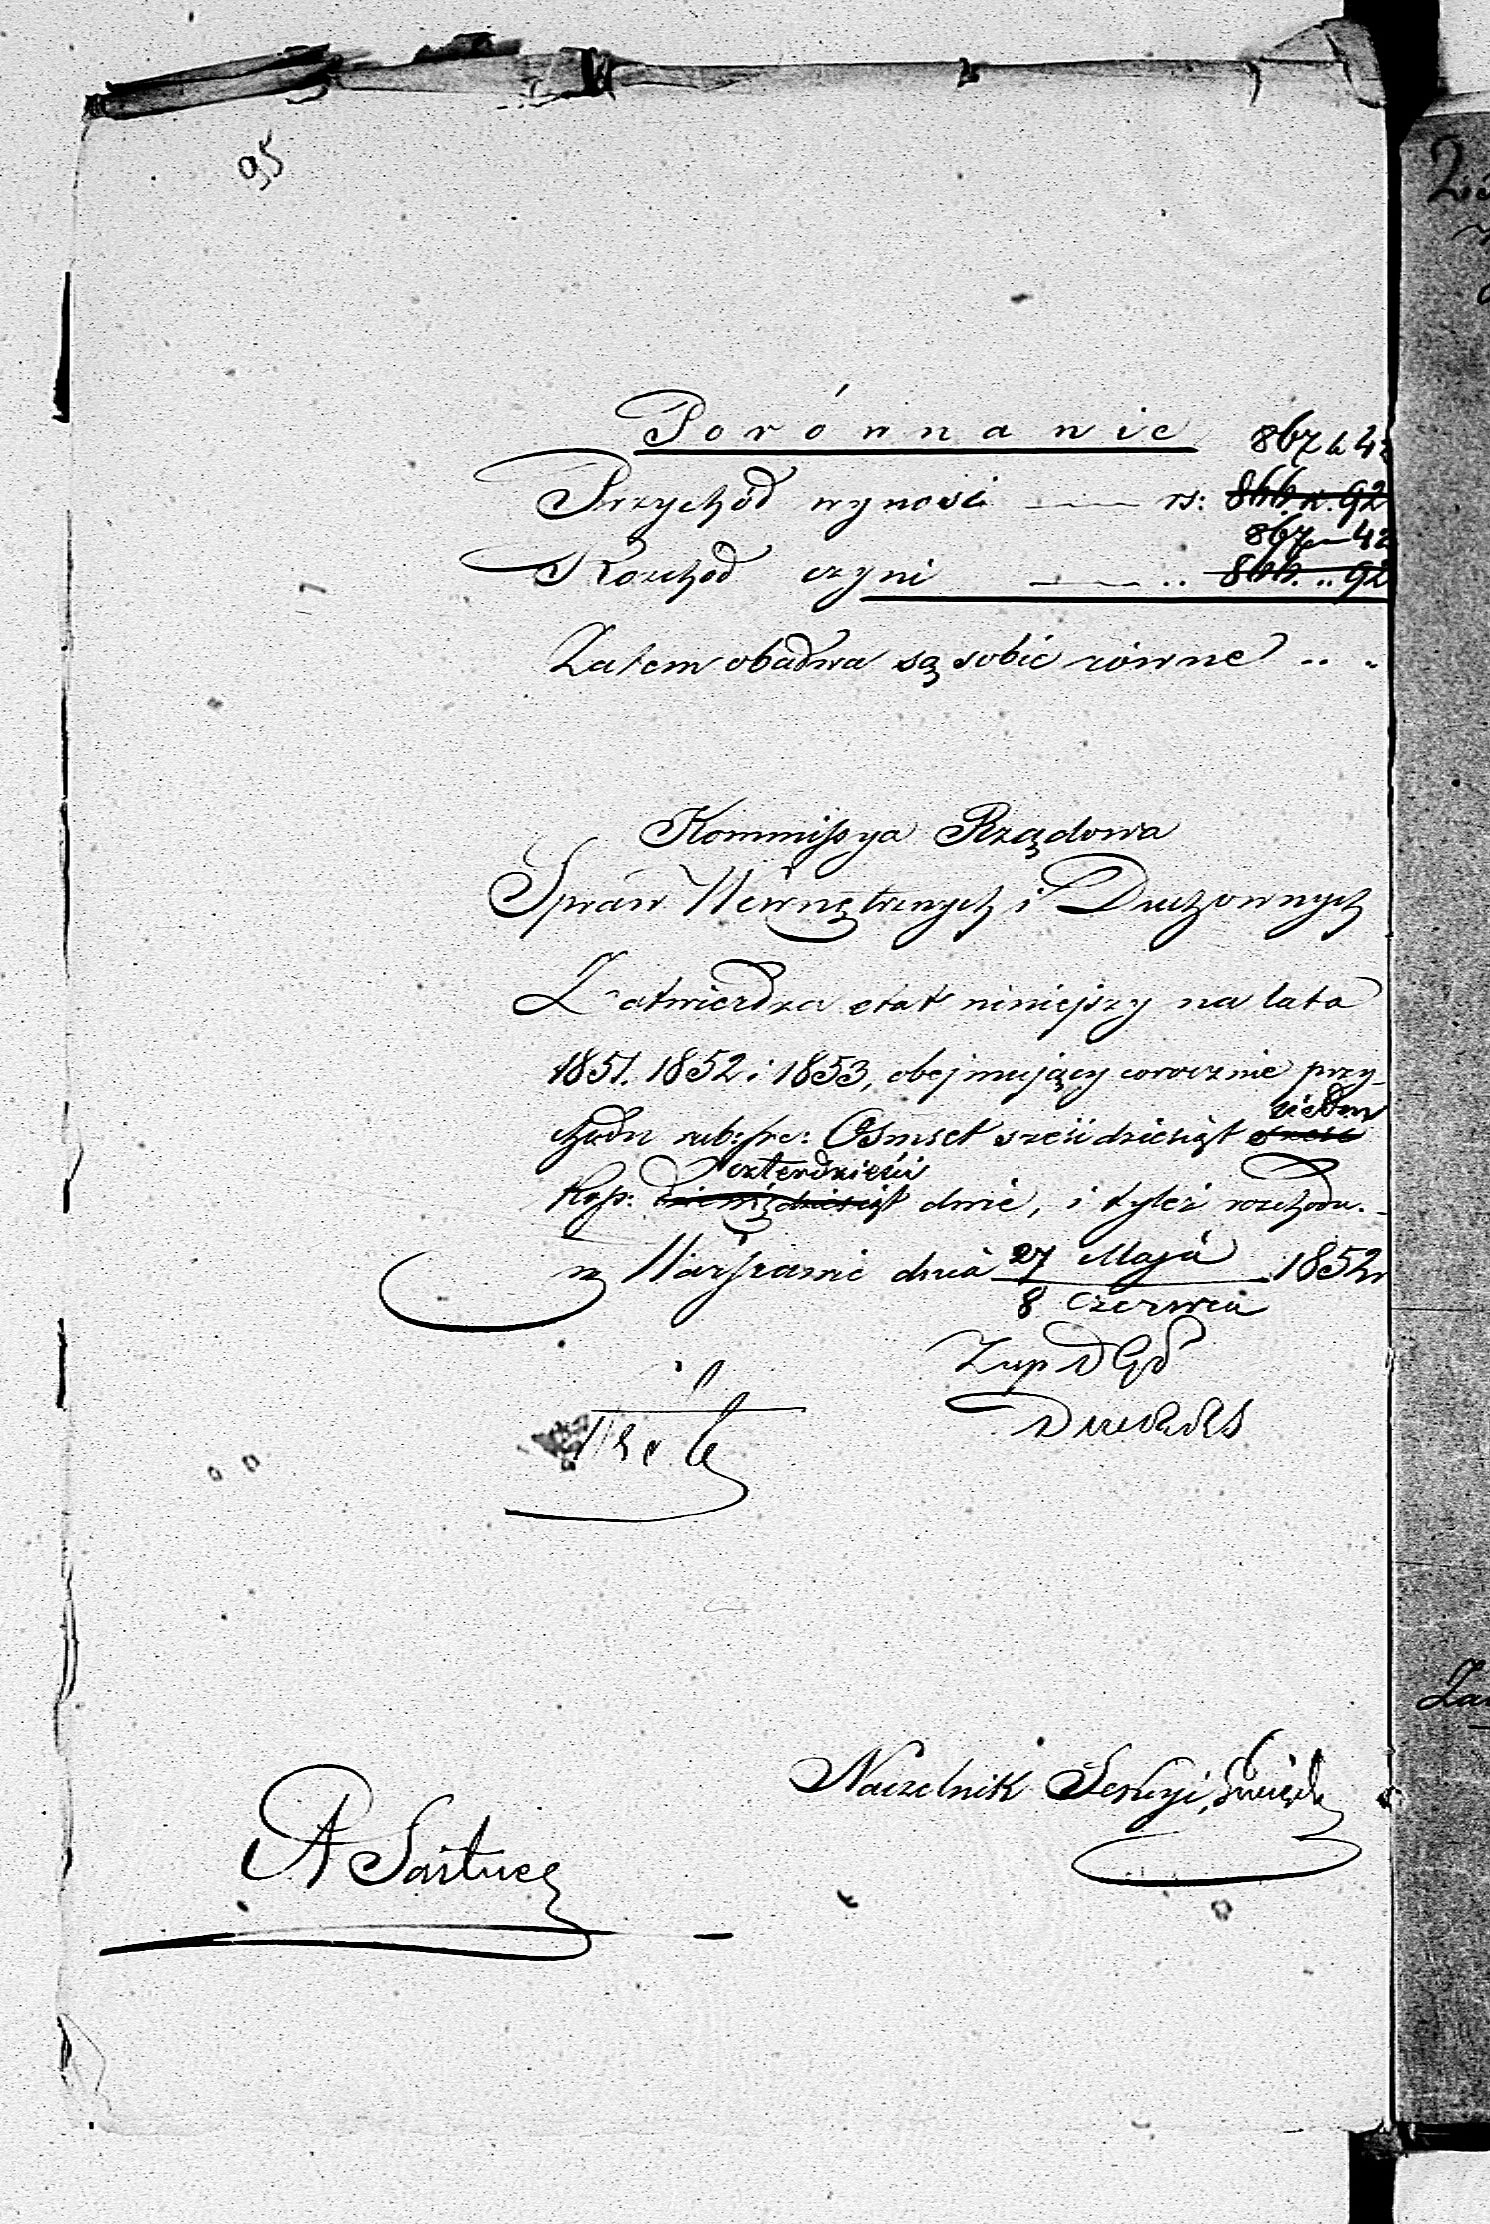 95
Porównanie
867 k 42
Przychód wynosi — rs: 866. k. 92
867 — 42
Rozchód czyni — .. 866. .. 92
Zatem obadwa są sobie równe .. "
Kommissya Rządowa
Spraw Wewnętrznych i Duchownych
Zatwierdza etat niniejszy na lata
1851. 1852 i 1853, obejmujący corocznie przy-
siedm
chodu rub: sre: Ośmset sześćdziesiąt sześć
czterdzieści
Kop: dziewięćdziesiąt dwie, i tyleż rozchodu. -
w Warszawie dnia 27 Maja 1852 r
8 Czerwca
Naczelnik Sekcyi,
A